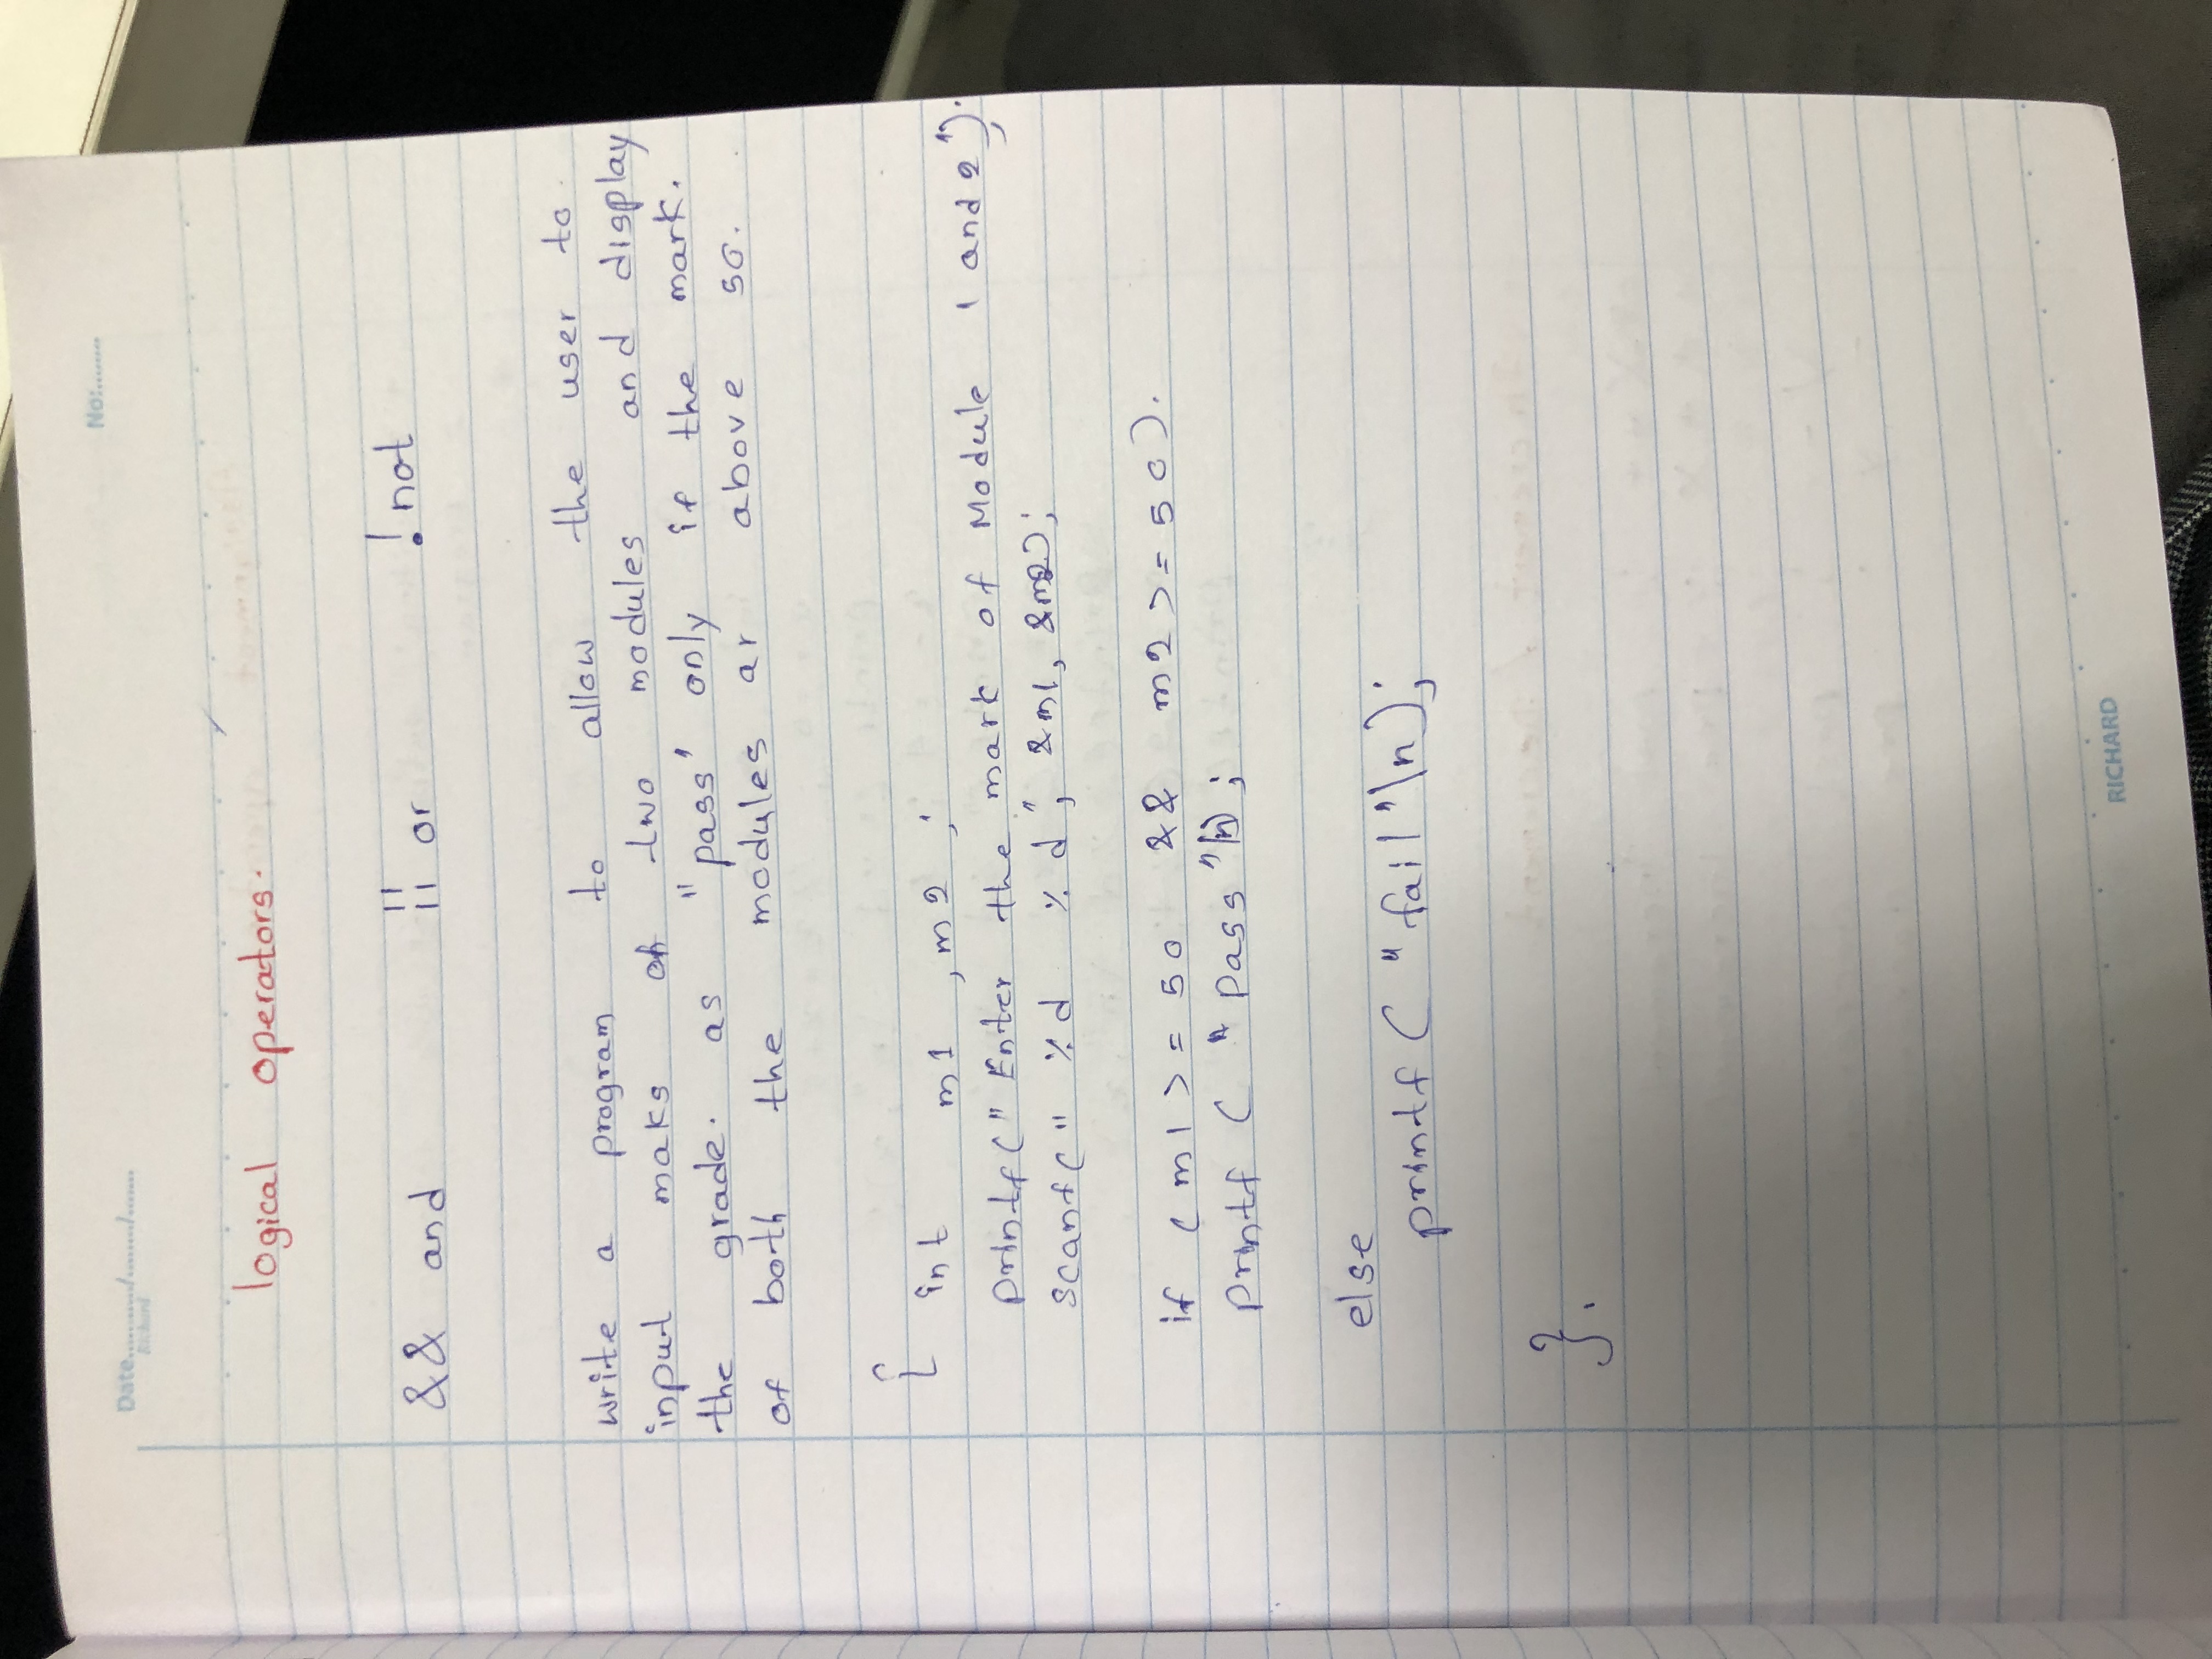 Date........../......../.......
Richard
No:........
logical operators.
&& and || or ! not
write a program to allow the user to
input maks of two modules and display
the grade. as "pass" only if the mark.
of both the modules ar above 50.
{
int m1 , m2 ;
printf(" Enter the mark of Module 1 and 2");
scanf(" %d %d", &m1, &m2);
if (m1 >= 50 && m2 >= 50).
printf ( " Pass "\n);
else
printf ( " fail "\n);
}.
RICHARD